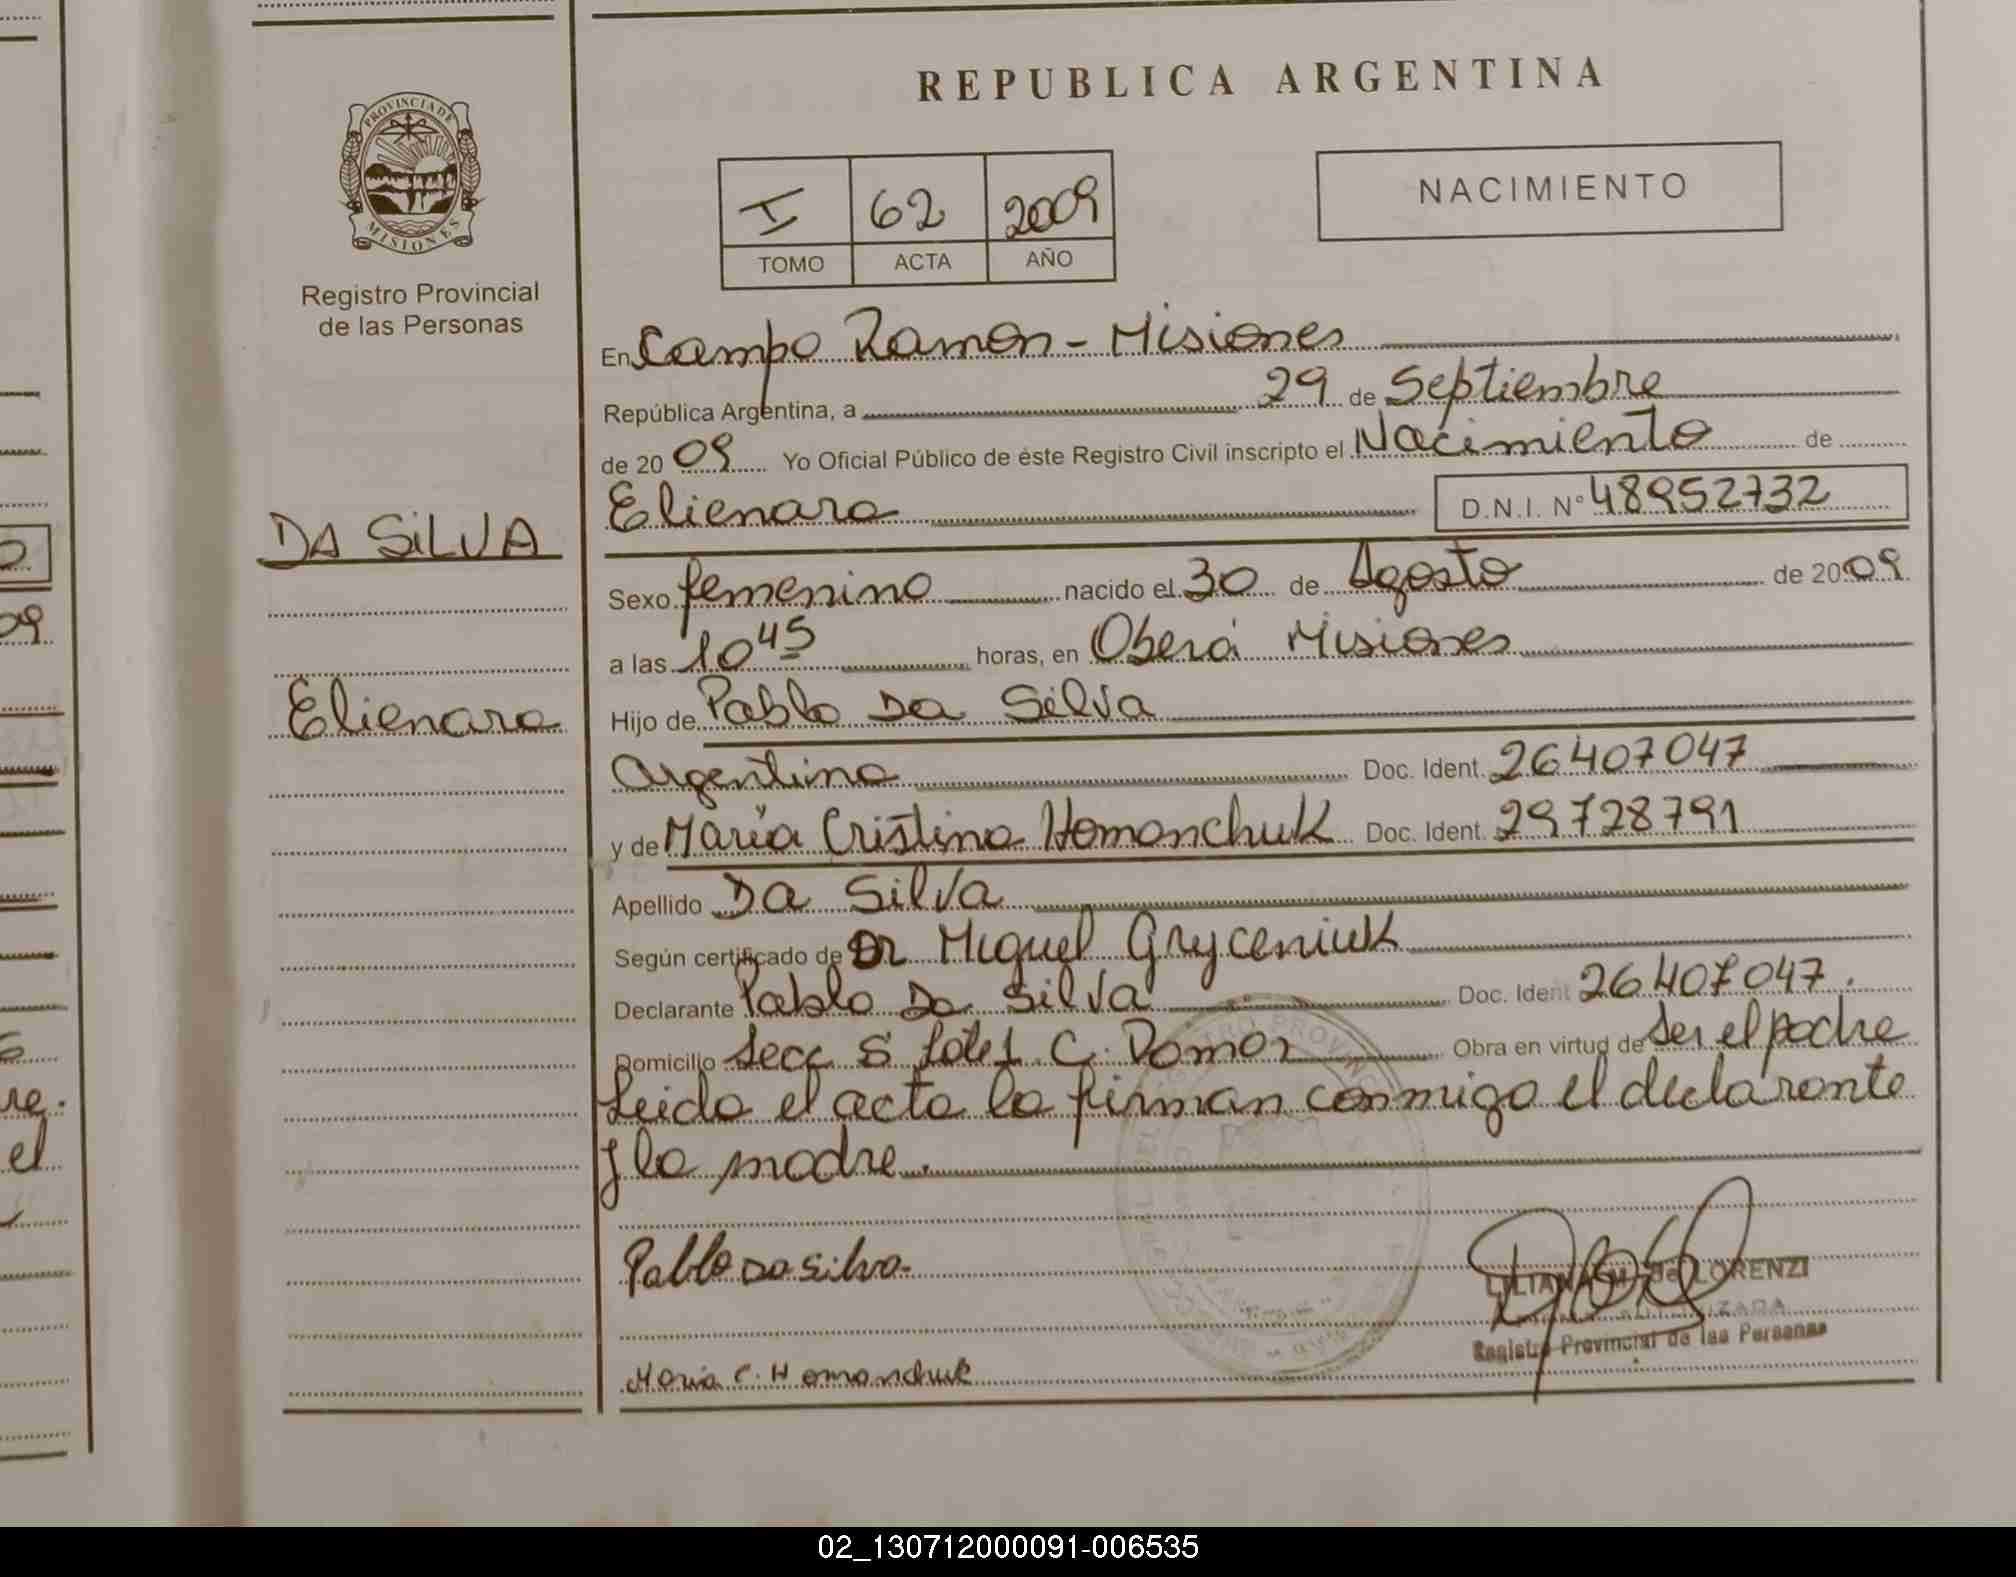 REPUBLICA ARGENTINA
PROVINCIA DE
MISIONES
Registro Provincial
de las Personas
I 62 2009
TOMO ACTA AÑO
NACIMIENTO
En Campo Ramon - Misiones
República Argentina, a 29 de Septiembre
de 20 09 Yo Oficial Público de éste Registro Civil inscripto el Nacimiento de
Elienara D.N.I. Nº 48952732
DA SILVA
Sexo femenino nacido el 30 de Agosto de 20 09
a las 10 45 horas, en Oberá Misiones
Elienara
Hijo de Pablo Da Silva
Argentina Doc. Ident. 26407047
y de María Cristina Homonchuk Doc. Ident. 29728791
Apellido Da Silva
Según certificado de Dr Miguel Gryceniuk
Declarante Pablo Da Silva Doc. Ident 26407047.
Domicilio Secc 5 Lote 1 C. Ramon Obra en virtud de Ser el padre
Leida el acta la firman conmigo el declarante
y la madre.
Pablo Da Silva.
LILIANA M. de LORENZI
Registro Provincial de las Personas
Maria C. Homonchuk
02_130712000091-006535